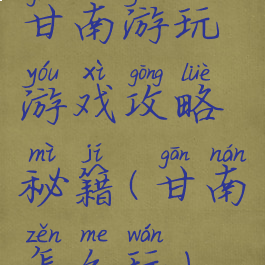 甘南游玩
yóu xì gōng lüè
游戏攻略
mì jí gān nán
秘籍(甘南
zěn me wán
怎么玩)